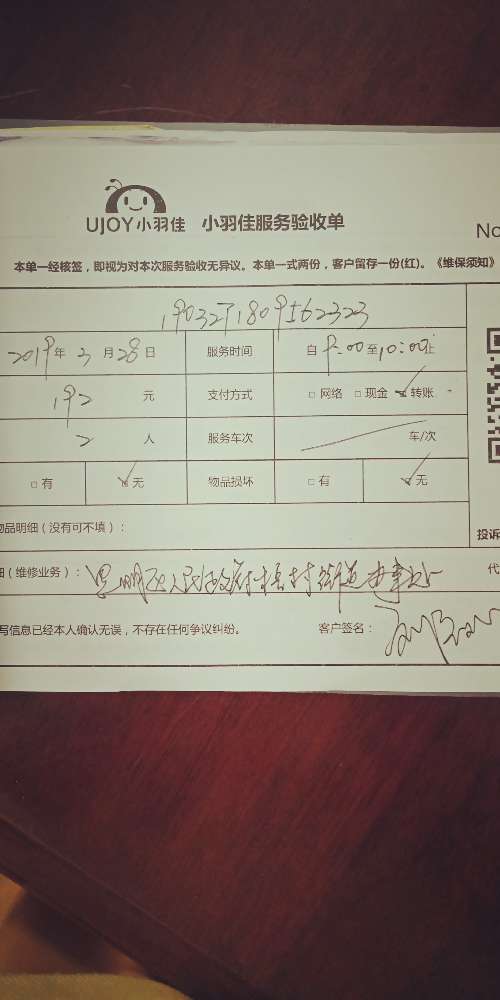 UJOY小羽佳 小羽佳服务验收单
No
本单一经核签，即视为对本次服务验收无异议。本单一式两份，客户留存一份(红)。《维保须知》
2019年 3 月 28 日 服务时间 自 9:00 至 10:00 止
192 元 支付方式 □ 网络 □ 现金 ☑ 转账
2 人 服务车次 车/次
□ 有 ☑ 无 物品损坏 □ 有 ☑ 无
物品明细（没有可不填）：
投诉
（维修业务）：思明区人民政府梧村街道办事处 代
写信息已经本人确认无误，不存在任何争议纠纷。 客户签名：